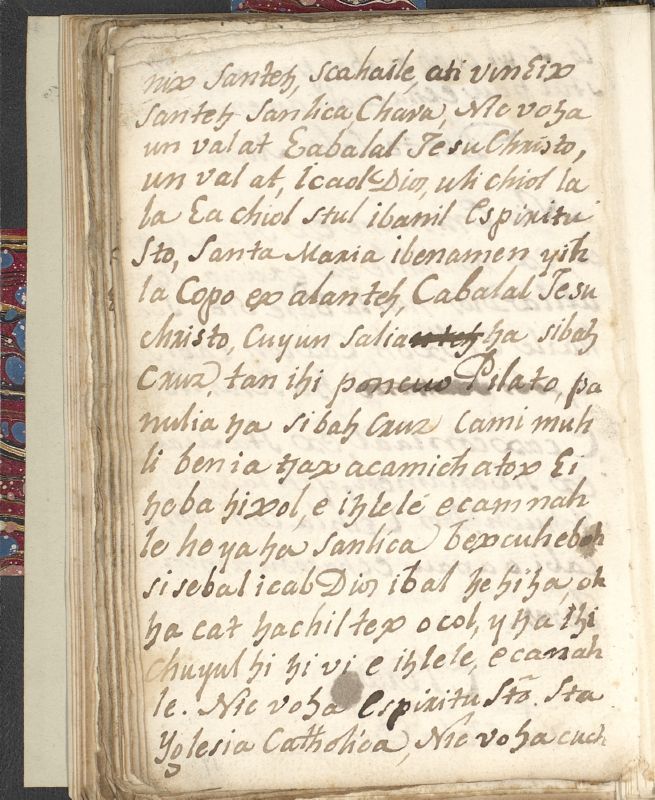 nix Santeh, scahaile, ati vinƐix
Santeh Sanlica Chara, Nic voha
un val at Ɛabalal Jesu Christo,
un val at, icaol Dios, uli chiol la
la Ɛa chiol stul ibanil Espiritu
Sto, Santa Maria ibenamen yih
la Copo ex alanteh, Cabalal Jesu
christo, Cuyun Salia ha sibah
Cruz, tan ihi poncuo Pilato, pa
nulia ha sibah Cruz Cami muh
li benia thax acamich atox Ɛi
hoba hixol, e ihlelé ecamnah
le ho ya ha Sanlica bexcuheboh
si sebal icab Dios ibal he hi ha, oh
ha cat hachiltex ocol, y ha ihi
chuyul hi hi vi e ihlele, ecanah
le. Nic voha Espiritu Sto. Sta
Yglesia Catholica, Nic voha cuch